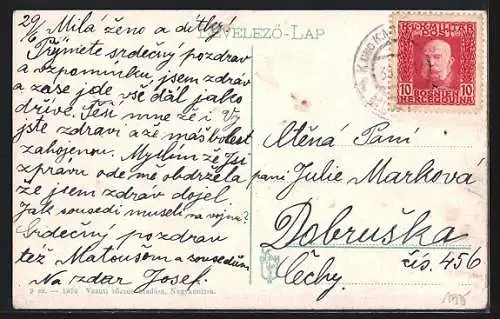 29/6 Milá ženo a dítky!
Přijmete srdečný pozdrav
a vzpomínku, jsem zdráv
a zase jde vše dál jako
dříve. Těší mne že i Vy
jste zdraví a že máš bolest
zahojenou. Myslím že jsi
zprávu ode mě obdržela
že jsem zdráv dojel
Jak sousedi museli na vojnu?
Srdečný pozdrav
též Matoušom a sousedům
Na zdar Josef.
LEVELEZŐ-LAP
K.UND K.MILITÄR
POST
10 BOSNIEN 10
HERCEGOVINA
Ctěná Paní
paní Julie Marková
Dobruška
čís. 456
Čechy
Vasuti
Nagykanizsa.